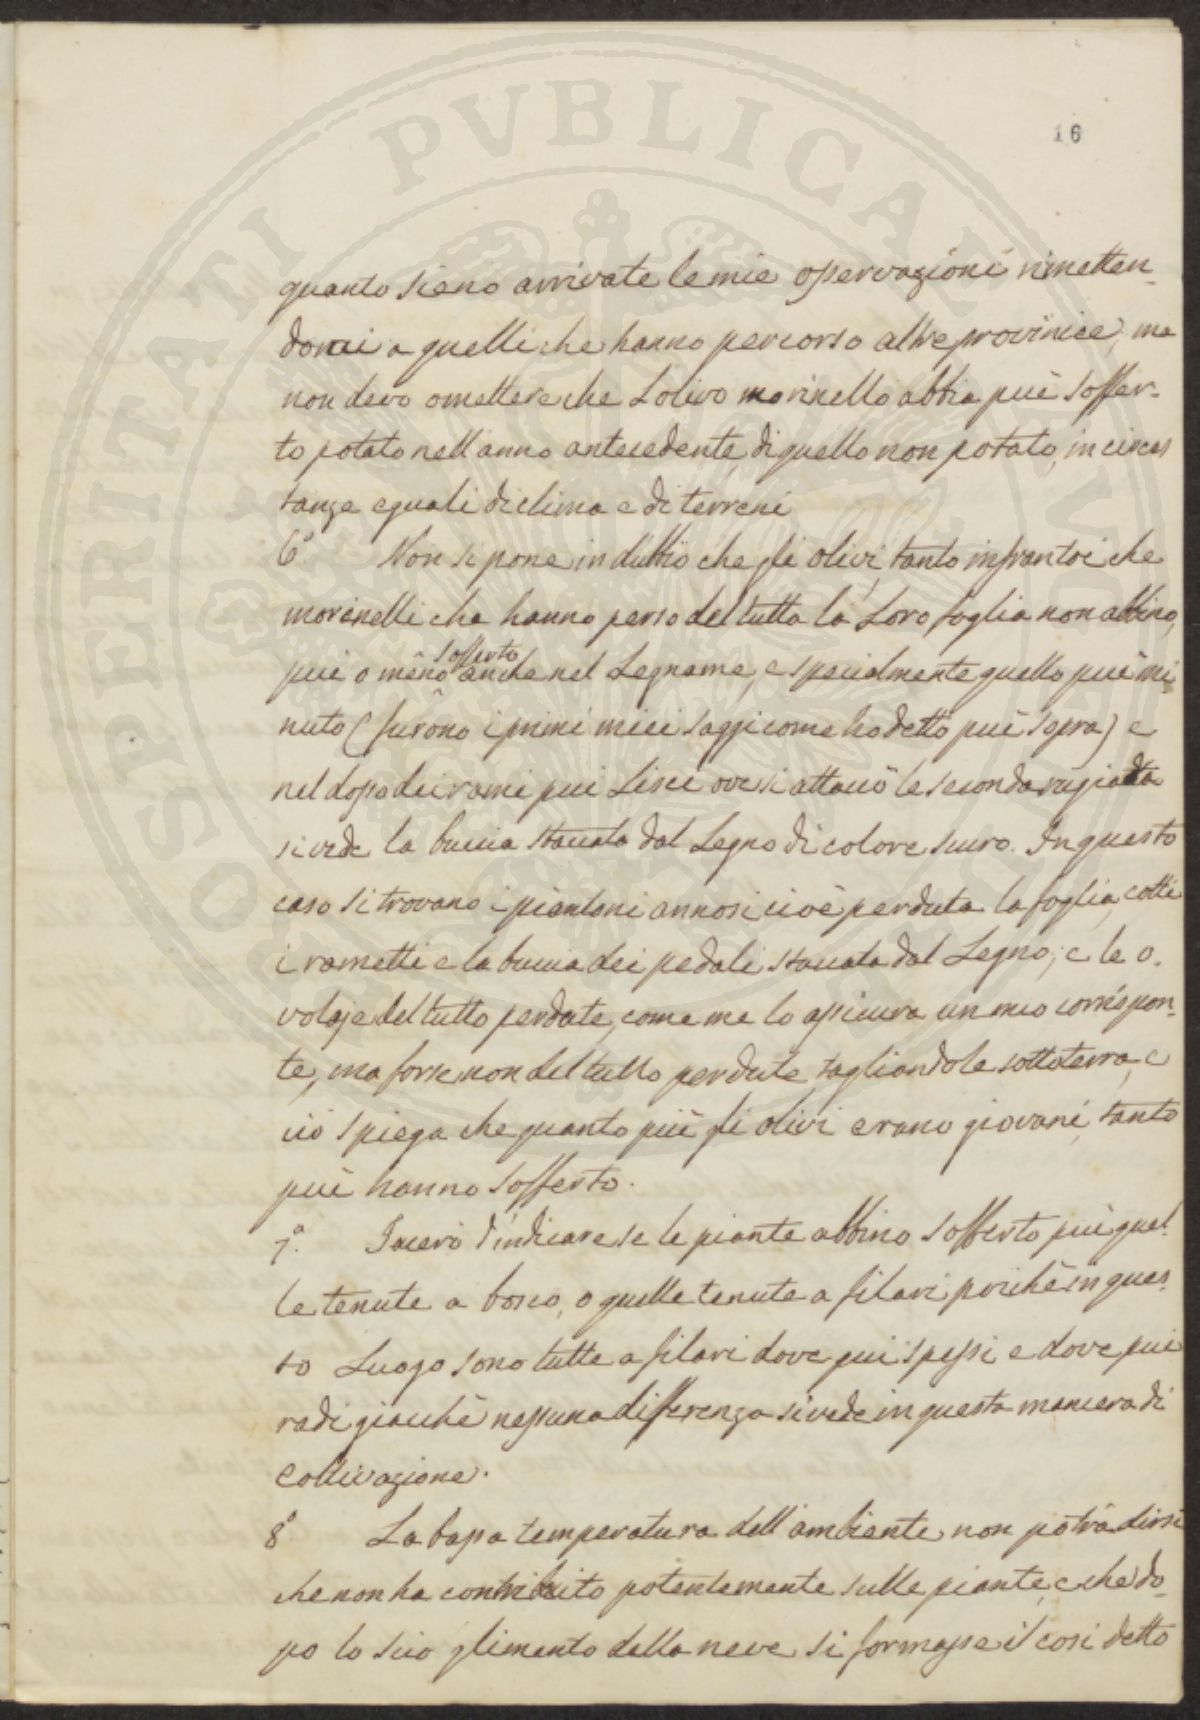 16
quanto sieno arrivate le mie osservazioni rimetten-
domi a quelli che hanno percorso altre provinice, ma
non devo omettere che l'olivo morinello abbia più soffer-
to potato nell'anno antecedente, di quello non potato, in circos
tanze eguali di clima e di terreni
6° Non si pone in dubbio che gli olivi, tanto infrantoi che
morinelli che hanno perso del tutto la loro foglia non abbino,
più o meno sofferto anche nel Legname, e specialmente quello più mi
nuto (furono i primi miei saggi come ho detto più sopra) e
nel dosso dei rami più Lisci ove si attaccò la seconda rugiada
si vede la buccia staccata dal Legno di colore scuro. In questo
caso si trovano i piantoni annosi cioè perduta la foglia, cotti
i rametti e la buccia dei pedali staccata dal Legno, e le o-
volaje del tutto perdute, come me lo assicura un mio corrispon-
te, ma forse non del tutto perdute tagliandole sottoterra, e
ciò spiega che quanto più gli olivi erano giovani, tanto
più hanno sofferto.
7° Tacerò d'indicare se le piante abbino sofferto più quel-
le tenute a bosco, o quelle tenute a filari poichè in ques-
to Luogo sono tutte a filari dove più spessi e dove più
radi giacchè nessuna differenza si vede in questa maniera di
Coltivazione.
8° La bassa temperatura dell'ambiente non potrà dirsi
che non ha contribuito potentemente sulle piante, e che do-
po lo scioglimento della neve si formasse il così detto
SOSPERITATI PVBLICAE